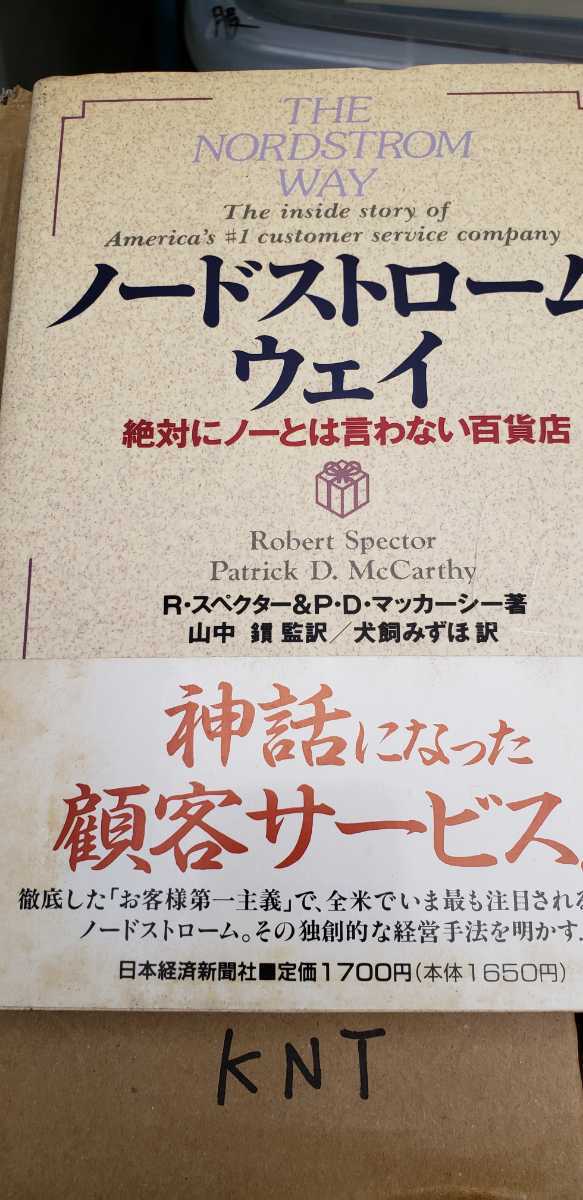 服
THE
NORDSTROM
WAY
The inside story of
America's #1 customer service company
ノードストローム
ウェイ
絶対にノーとは言わない百貨店
Robert Spector
Patrick D. McCarthy
R・スペクター&P・D・マッカーシー著
山中 鏆 監訳／犬飼みずほ 訳
神話になった
顧客サービス。
徹底した「お客様第一主義」で、全米でいま最も注目される
ノードストローム。その独創的な経営手法を明かす
日本経済新聞社■定価1700円(本体1650円)
KNT